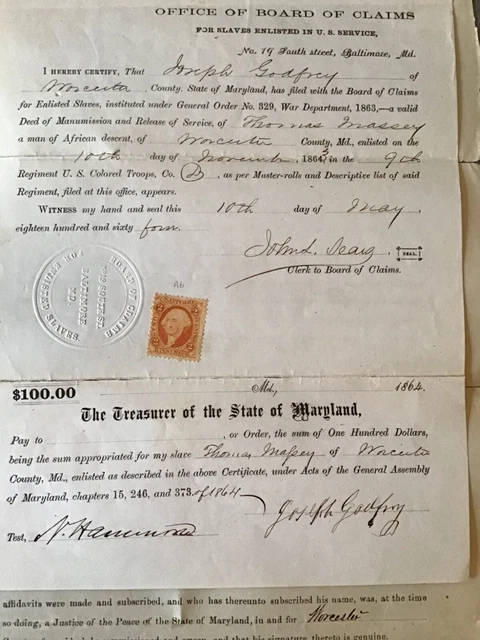 OFFICE OF BOARD OF CLAIMS
FOR SLAVES ENLISTED IN U. S. SERVICE,
No. 19 South street, Baltimore, Md.
I HEREBY CERTIFY, That Joseph Godfrey of
Worcester County, State of Maryland, has filed with the Board of Claims
for Enlisted Slaves, instituted under General Order No. 329, War Department, 1863,—a valid
Deed of Manumission and Release of Service, of Thomas Massey
a man of African descent, of Worcester County, Md., enlisted on the
10th day of November 1863 in the 9th
Regiment U. S. Colored Troops, Co. D, as per Muster-rolls and Descriptive list of said
Regiment, filed at this office, appears.
WITNESS my hand and seal this 10th day of May,
eighteen hundred and sixty four.
John S. Sears
SEAL.
Clerk to Board of Claims.
BOARD OF CLAIMS
FOR ENLISTED SLAVES
No 19 SOUTH ST.
BALTIMORE
MD.
A6
2 2
$100.00
Md., 1864.
The Treasurer of the State of Maryland,
Pay to , or Order, the sum of One Hundred Dollars,
being the sum appropriated for my slave Thomas Massey of Worcester
County, Md., enlisted as described in the above Certificate, under Acts of the General Assembly
of Maryland, chapters 15, 246, and 373 of 1864
Joseph Godfrey
Test, N. Hammond
affidavits were made and subscribed, and who has thereunto subscribed his name, was, at the time
so doing, a Justice of the Peace of the State of Maryland, in and for Worcester
and that his signature thereto is genuine.